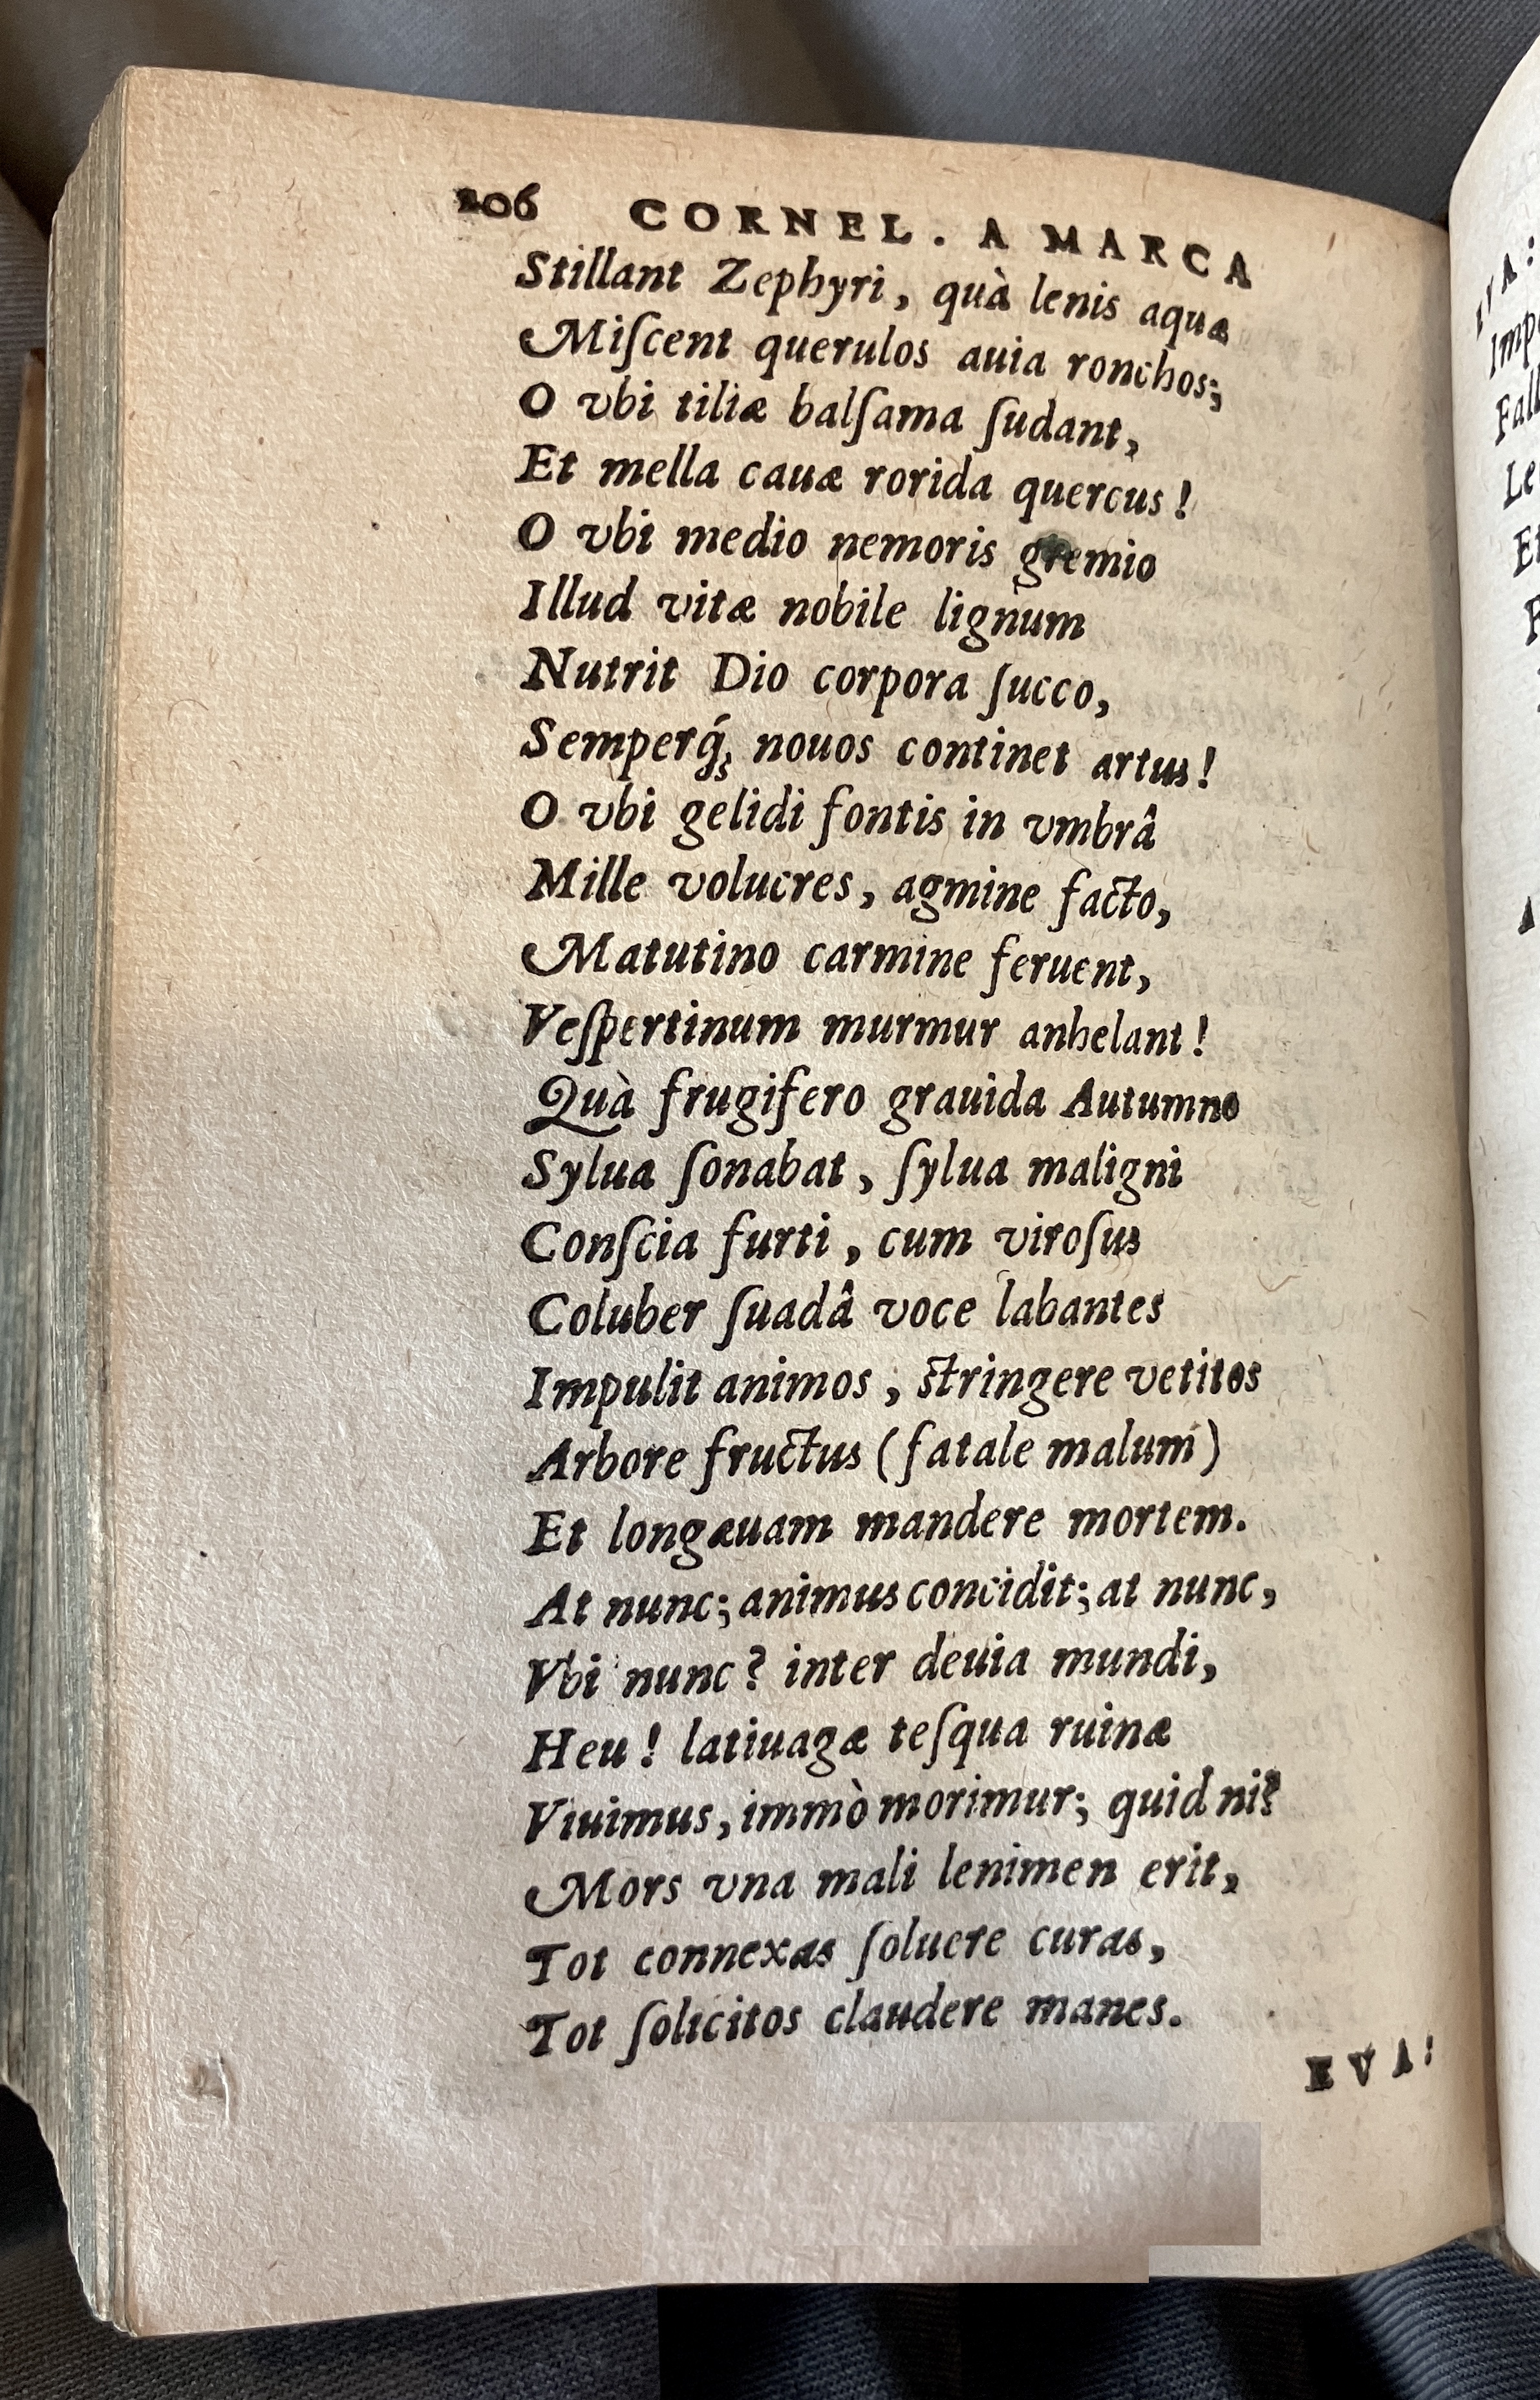 206 CORNEL. A MARCA
Stillant Zephyri, quà lenis aquæ
Miſcent querulos auia ronchos;
O vbi tiliæ balſama ſudant,
Et mella cauæ rorida quercus!
O vbi medio nemoris gremio
Illud vitæ nobile lignum
Nutrit Dio corpora ſucco,
Semperq́; nouos continet artus!
O vbi gelidi fontis in vmbrâ
Mille volucres, agmine facto,
Matutino carmine feruent,
Veſpertinum murmur anhelant!
Quà frugifero grauida Autumno
Sylua ſonabat, ſylua maligni
Conſcia furti, cum viroſus
Coluber ſuadâ voce labantes
Impulit animos, ſtringere vetitos
Arbore fructus (fatale malum)
Et longæuam mandere mortem.
At nunc; animus concidit; at nunc,
Vbi nunc? inter deuia mundi,
Heu! latiuagæ teſqua ruinæ
Viuimus, immò morimur; quid ni?
Mors vna mali lenimen erit,
Tot connexas ſoluere curas,
Tot ſolicitos claudere manes.
EVA: